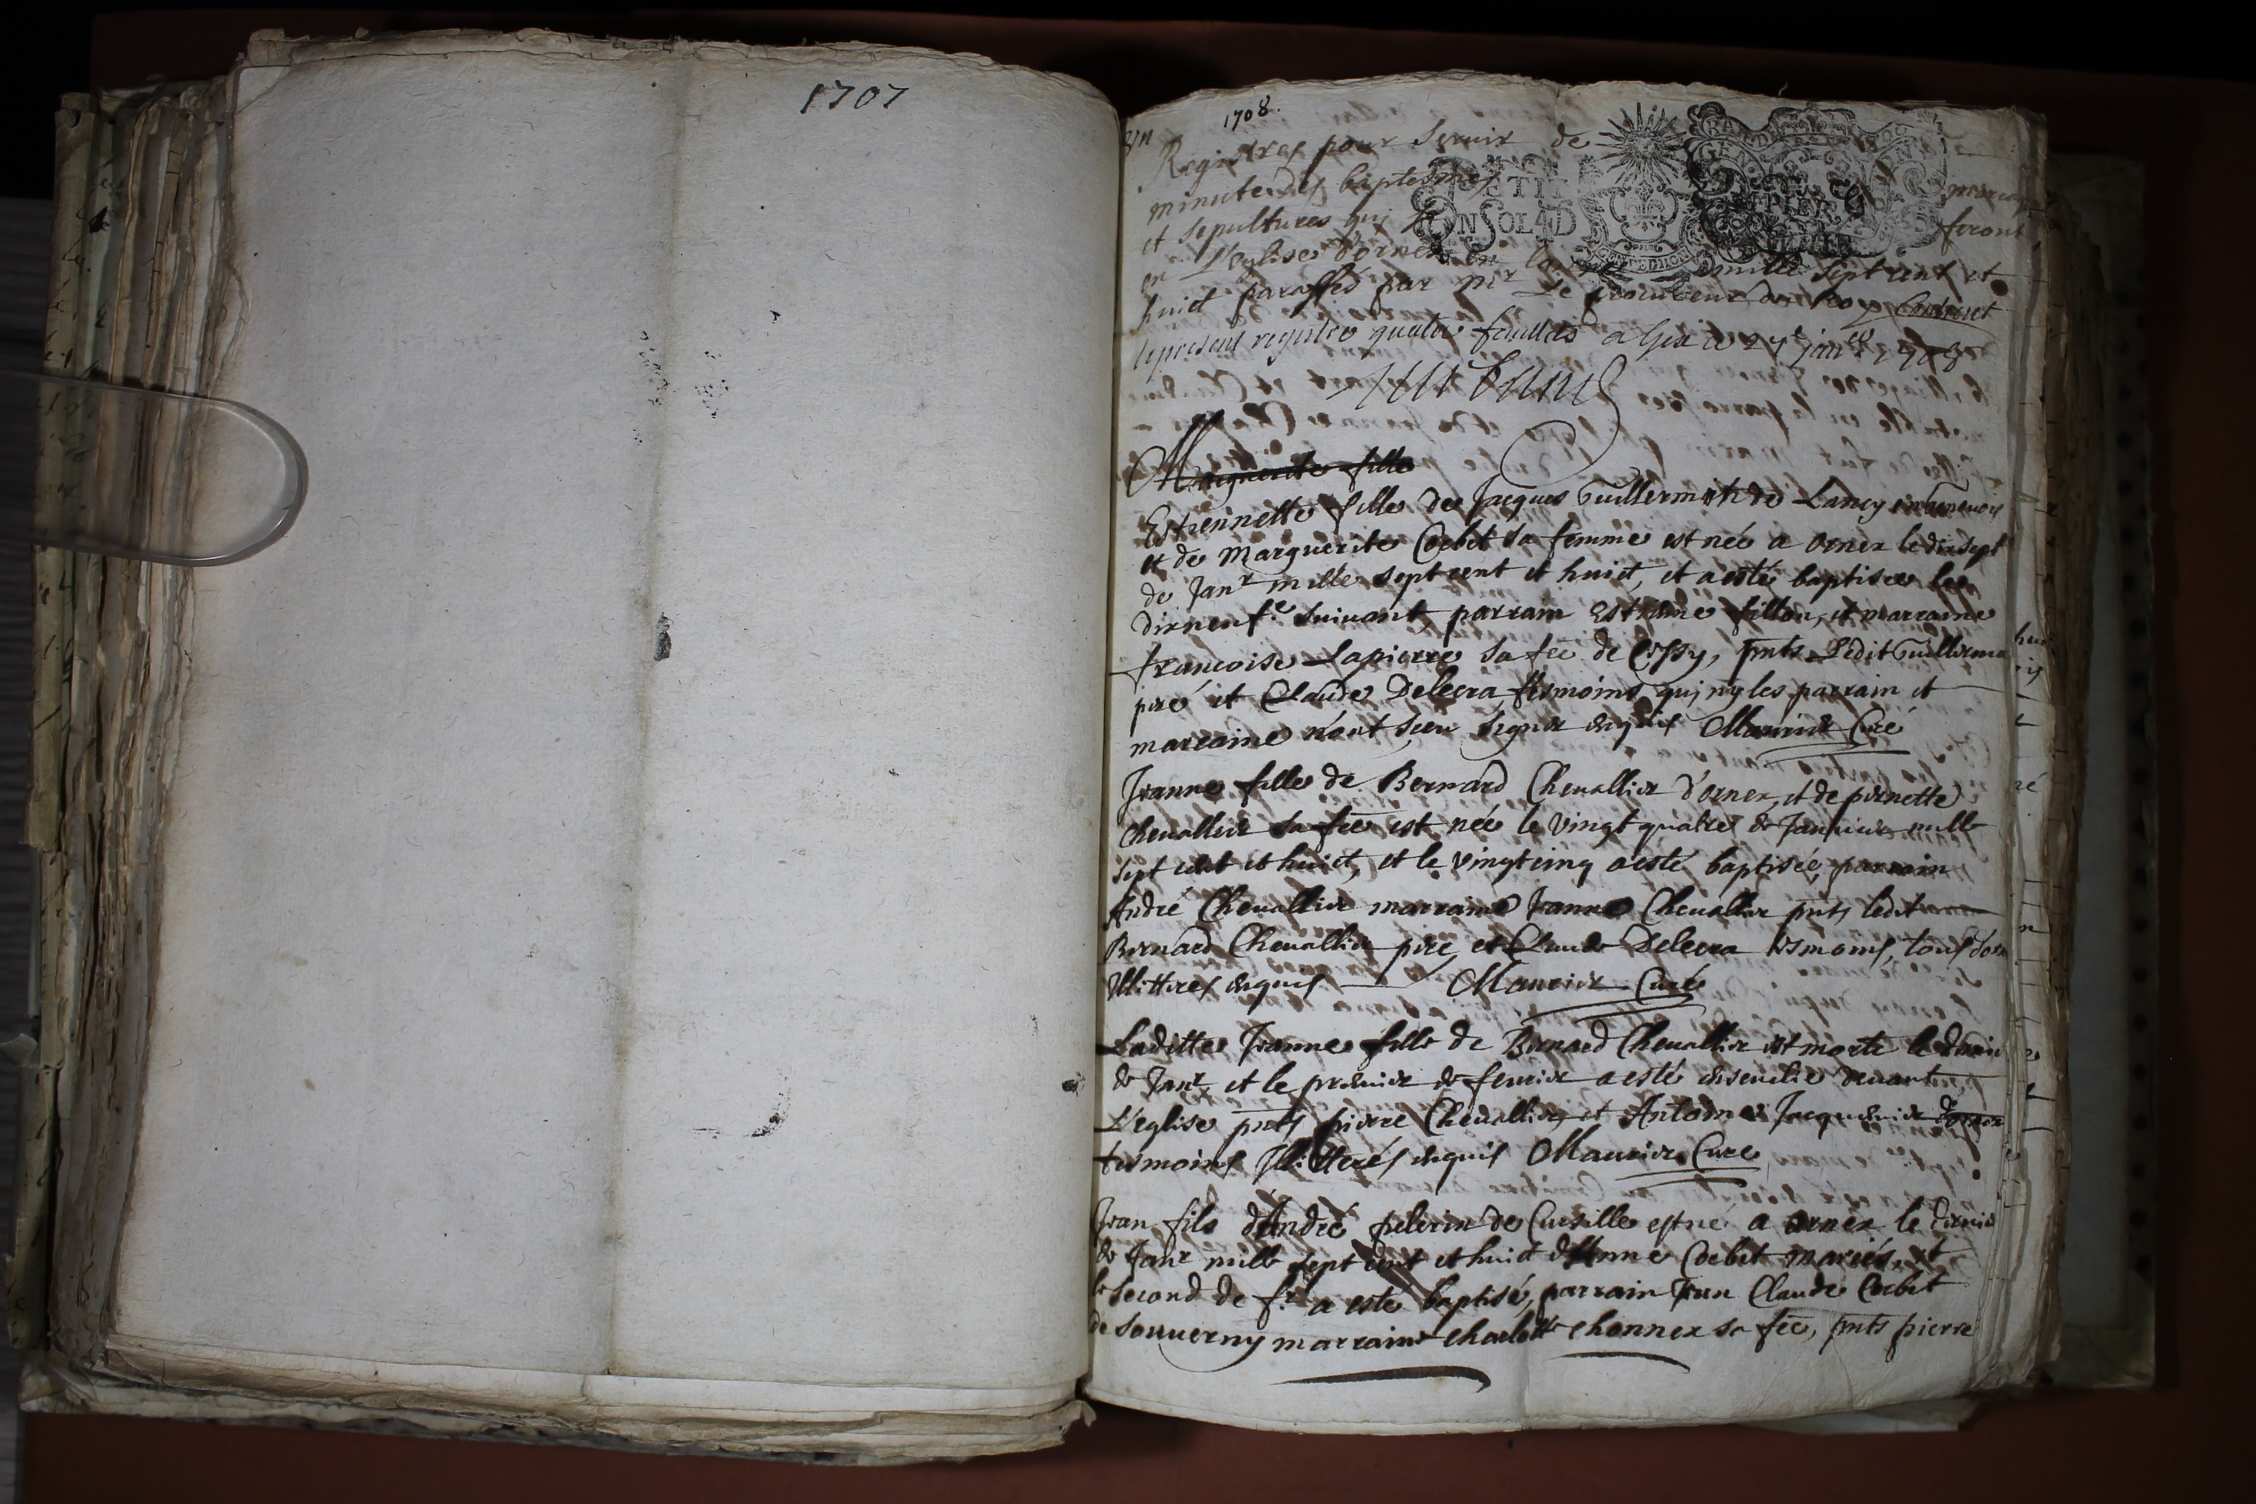 1707
1708.
Registres pour servir de
minute des baptesmes
et sepultures qui se feront
en L'eglise d'ornex en mille sept cent et
huict paraffés par Mr Le procureur du Roy Contenant
le present registre quatre feuillets a Gex ce 27e janer 1708
Marguerite fille
Estiennette fille de Jacques Guillermet de Lancy
et de Marguerite Corbet sa femme est née a ornex le dixsept
de Janr mille sept cent et huict, et a esté baptisée le
dixneufe suivant, parrain Estienne fillon, et marraine
francoise Lapierre sa fēe de Cessy, pnts Ledit Guillerme
pere et Claude Delecra tesmoins quj ny les parrain et
marraine n'ont sceu signer enquis Maurier Curé
Jeanne fille de Bernard Chevallier d'ornex, et de pernette
chevallier sa fēe est née le vingt quatre de Janvier mille
sept cent et huict, et le vingtcinq a esté baptisée, parrain
André Chevallier marraine Jeanne Chevallier pnts ledit
Bernard Chevallier pere, et Claude Delecra tesmoins, tous
Illitteres enquis Maurier Curé
Laditte Jeanne fille de Bernard Chevallier est morte le dernier
de Janr et le premier de fevrier a esté ensevelie devant
L'eglise pnts pierre Chevallier et Antoine Jacquemier d'ornex
tesmoins Illitterés enquis Maurier Curé
Jean fils d'André pelerin de est né a ornex le dernier
de Janr mille sept cent et huict d'Anne Corbet mariés, et
le second de fr a esté baptisé, parrain Jean Claude Corbet
de sauverny marraine charlotte chonnex sa fēe, pnts pierre